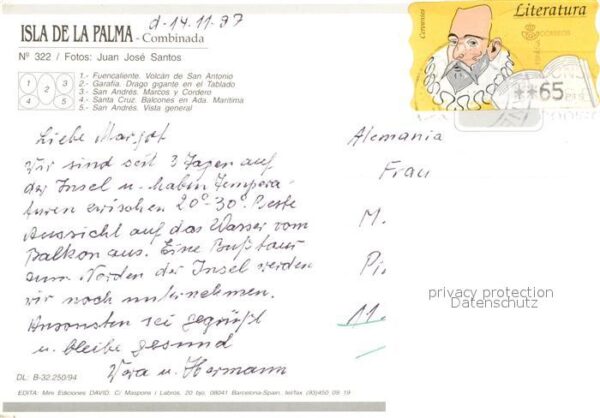 d-14.11.97
ISLA DE LA PALMA - Combinada
Nº 322 / Fotos: Juan José Santos
1 2 3 4 5
1.- Fuencaliente. Volcán de San Antonio
2.- Garafía. Drago gigante en el Tablado
3.- San Andrés. Marcos y Cordero
4.- Santa Cruz. Balcones en Ada. Marítima
5.- San Andrés. Vista general
Cervantes
Literatura
CORREOS
ESPAÑA
**65 PTS
Liebe Margot
Wir sind seit 3 Tagen auf
der Insel u. haben Tempera-
turen zwischen 20°-30°. Beste
Aussicht auf das Wasser vom
Balkon aus. Eine Bustour
zum Norden der Insel werden
wir noch unternehmen.
Ansonsten sei gegrüßt
u. bleibe gesund
Vera u. Hermann
Alemania
Frau
M.
Pi
11
privacy protection
Datenschutz
DL: B-32.250/94
EDITA: Mini Ediciones DAVID. C/ Maspons i Labros, 20 bjo. 08041 Barcelona-Spain. tel/fax (93)450 09 19